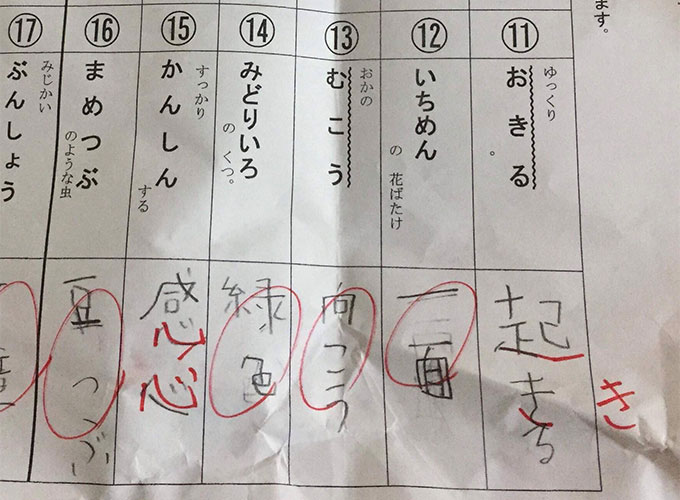 ます。
⑪
ゆっくり
おきる。
起きる
き
⑫
いちめん
の 花ばたけ
一面
⑬
おかの
むこう
向こう
⑭
みどりいろ
の くつ。
緑色
⑮
すっかり
かんしん
する
感心
⑯
まめつぶ
のような虫
豆つぶ
⑰
みじかい
ぶんしょう